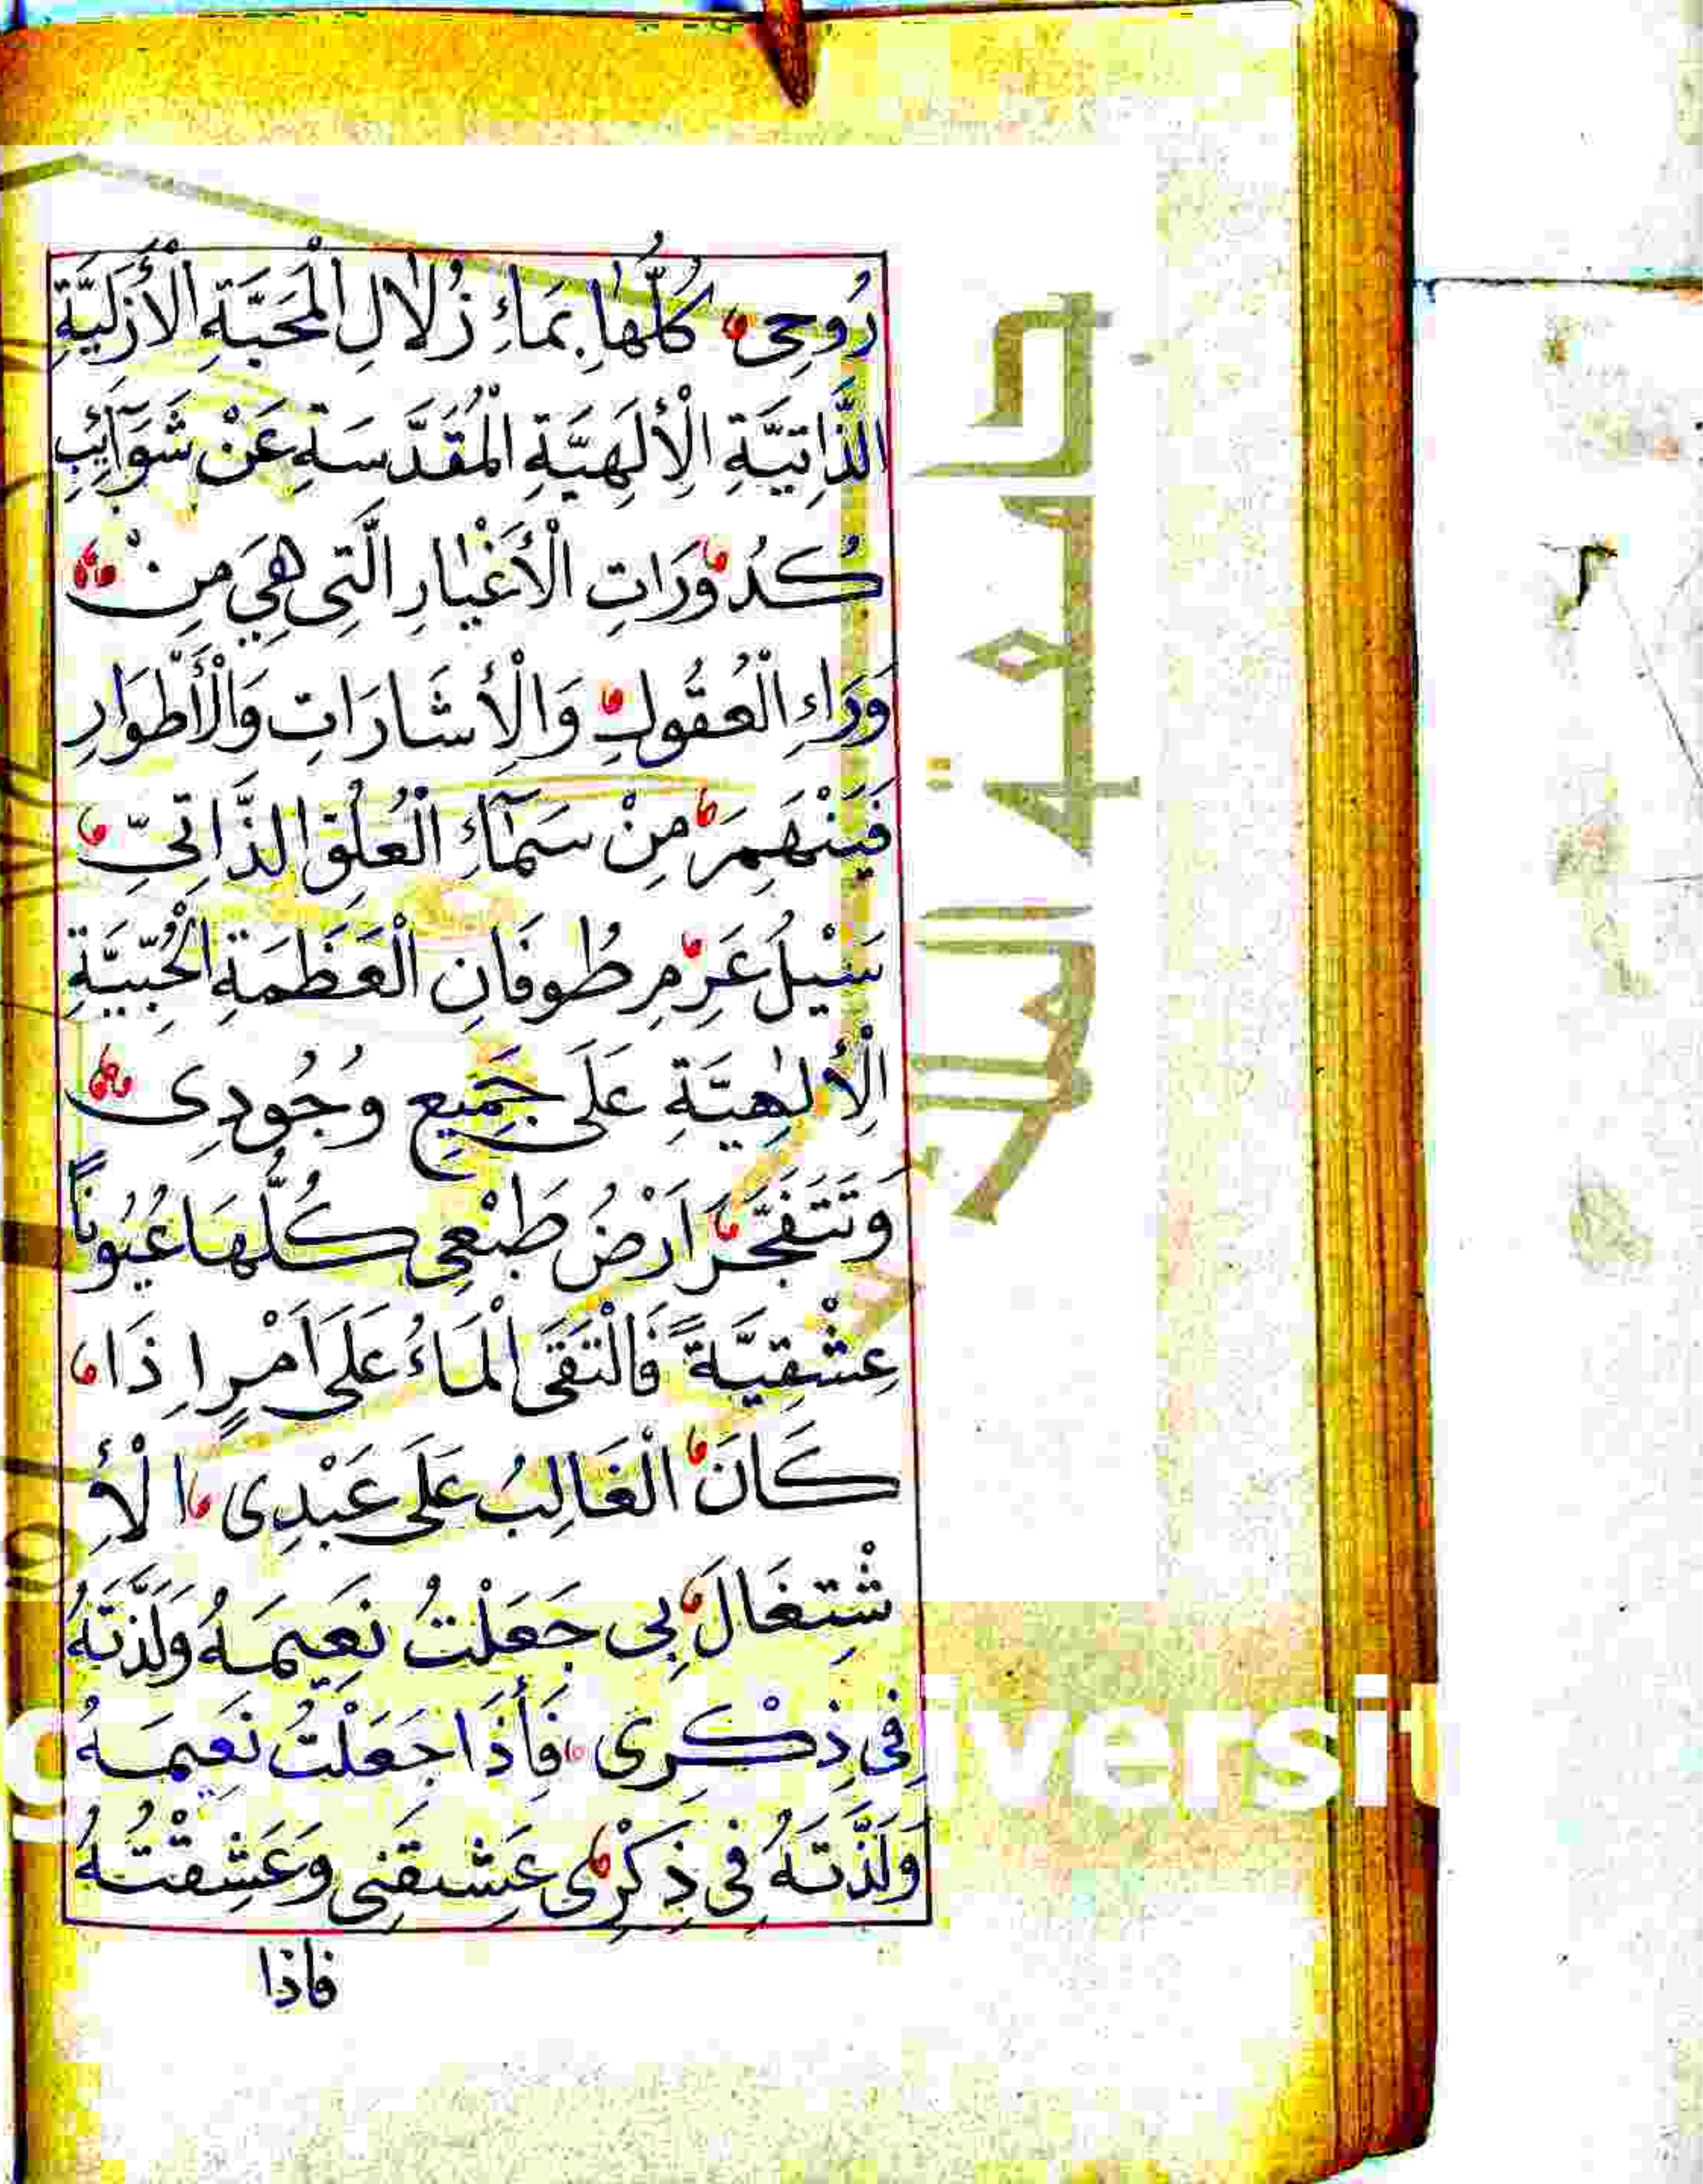 رُوحِى كُلُّهَا بِمَاءِ زُلَالِ الْمَحَبَّةِ الْأَزَلِيَّةِ
الذَّاتِيَّةِ الْإِلَهِيَّةِ الْمُقَدَّسَةِ عَنْ شَوَآئِبِ
كُدُورَاتِ الْأَغْيَارِ الَّتِى هِيَ مِنْ
وَرَاءِ الْعُقُولِ وَالْإِشَارَاتِ وَالْأَطْوَارِ
فَيَنْهَمِرَ مِنْ سَمَآءِ الْعُلُوِّ الذَّاتِيِّ
سَيْلُ عَرِمِ طُوفَانِ الْعَظَمَةِ الْحُبِّيَّةِ
الْإِلٰهِيَّةِ عَلَى جَمِيعِ وُجُودِى
وَتَتَفَجَّرَ اَرْضُ طَبْعِى كُلُّهَا عُيُونًا
عِشْقِيَّةً فَالْتَقَى الْمَاءُ عَلَى اَمْرٍ اِذَا
كَانَ الْغَالِبُ عَلَى عَبْدِى الْأِ
شْتِغَالَ بِى جَعَلْتُ نَعِيمَهُ وَلَذَّتَهُ
فِى ذِكْرِى فَأِذَا جَعَلْتُ نَعِيمَهُ
وَلَذَّتَهُ فِى ذِكْرِى عَشِقَنِى وَعَشِقْتُهُ
فاذا
جامعة الملك
versit